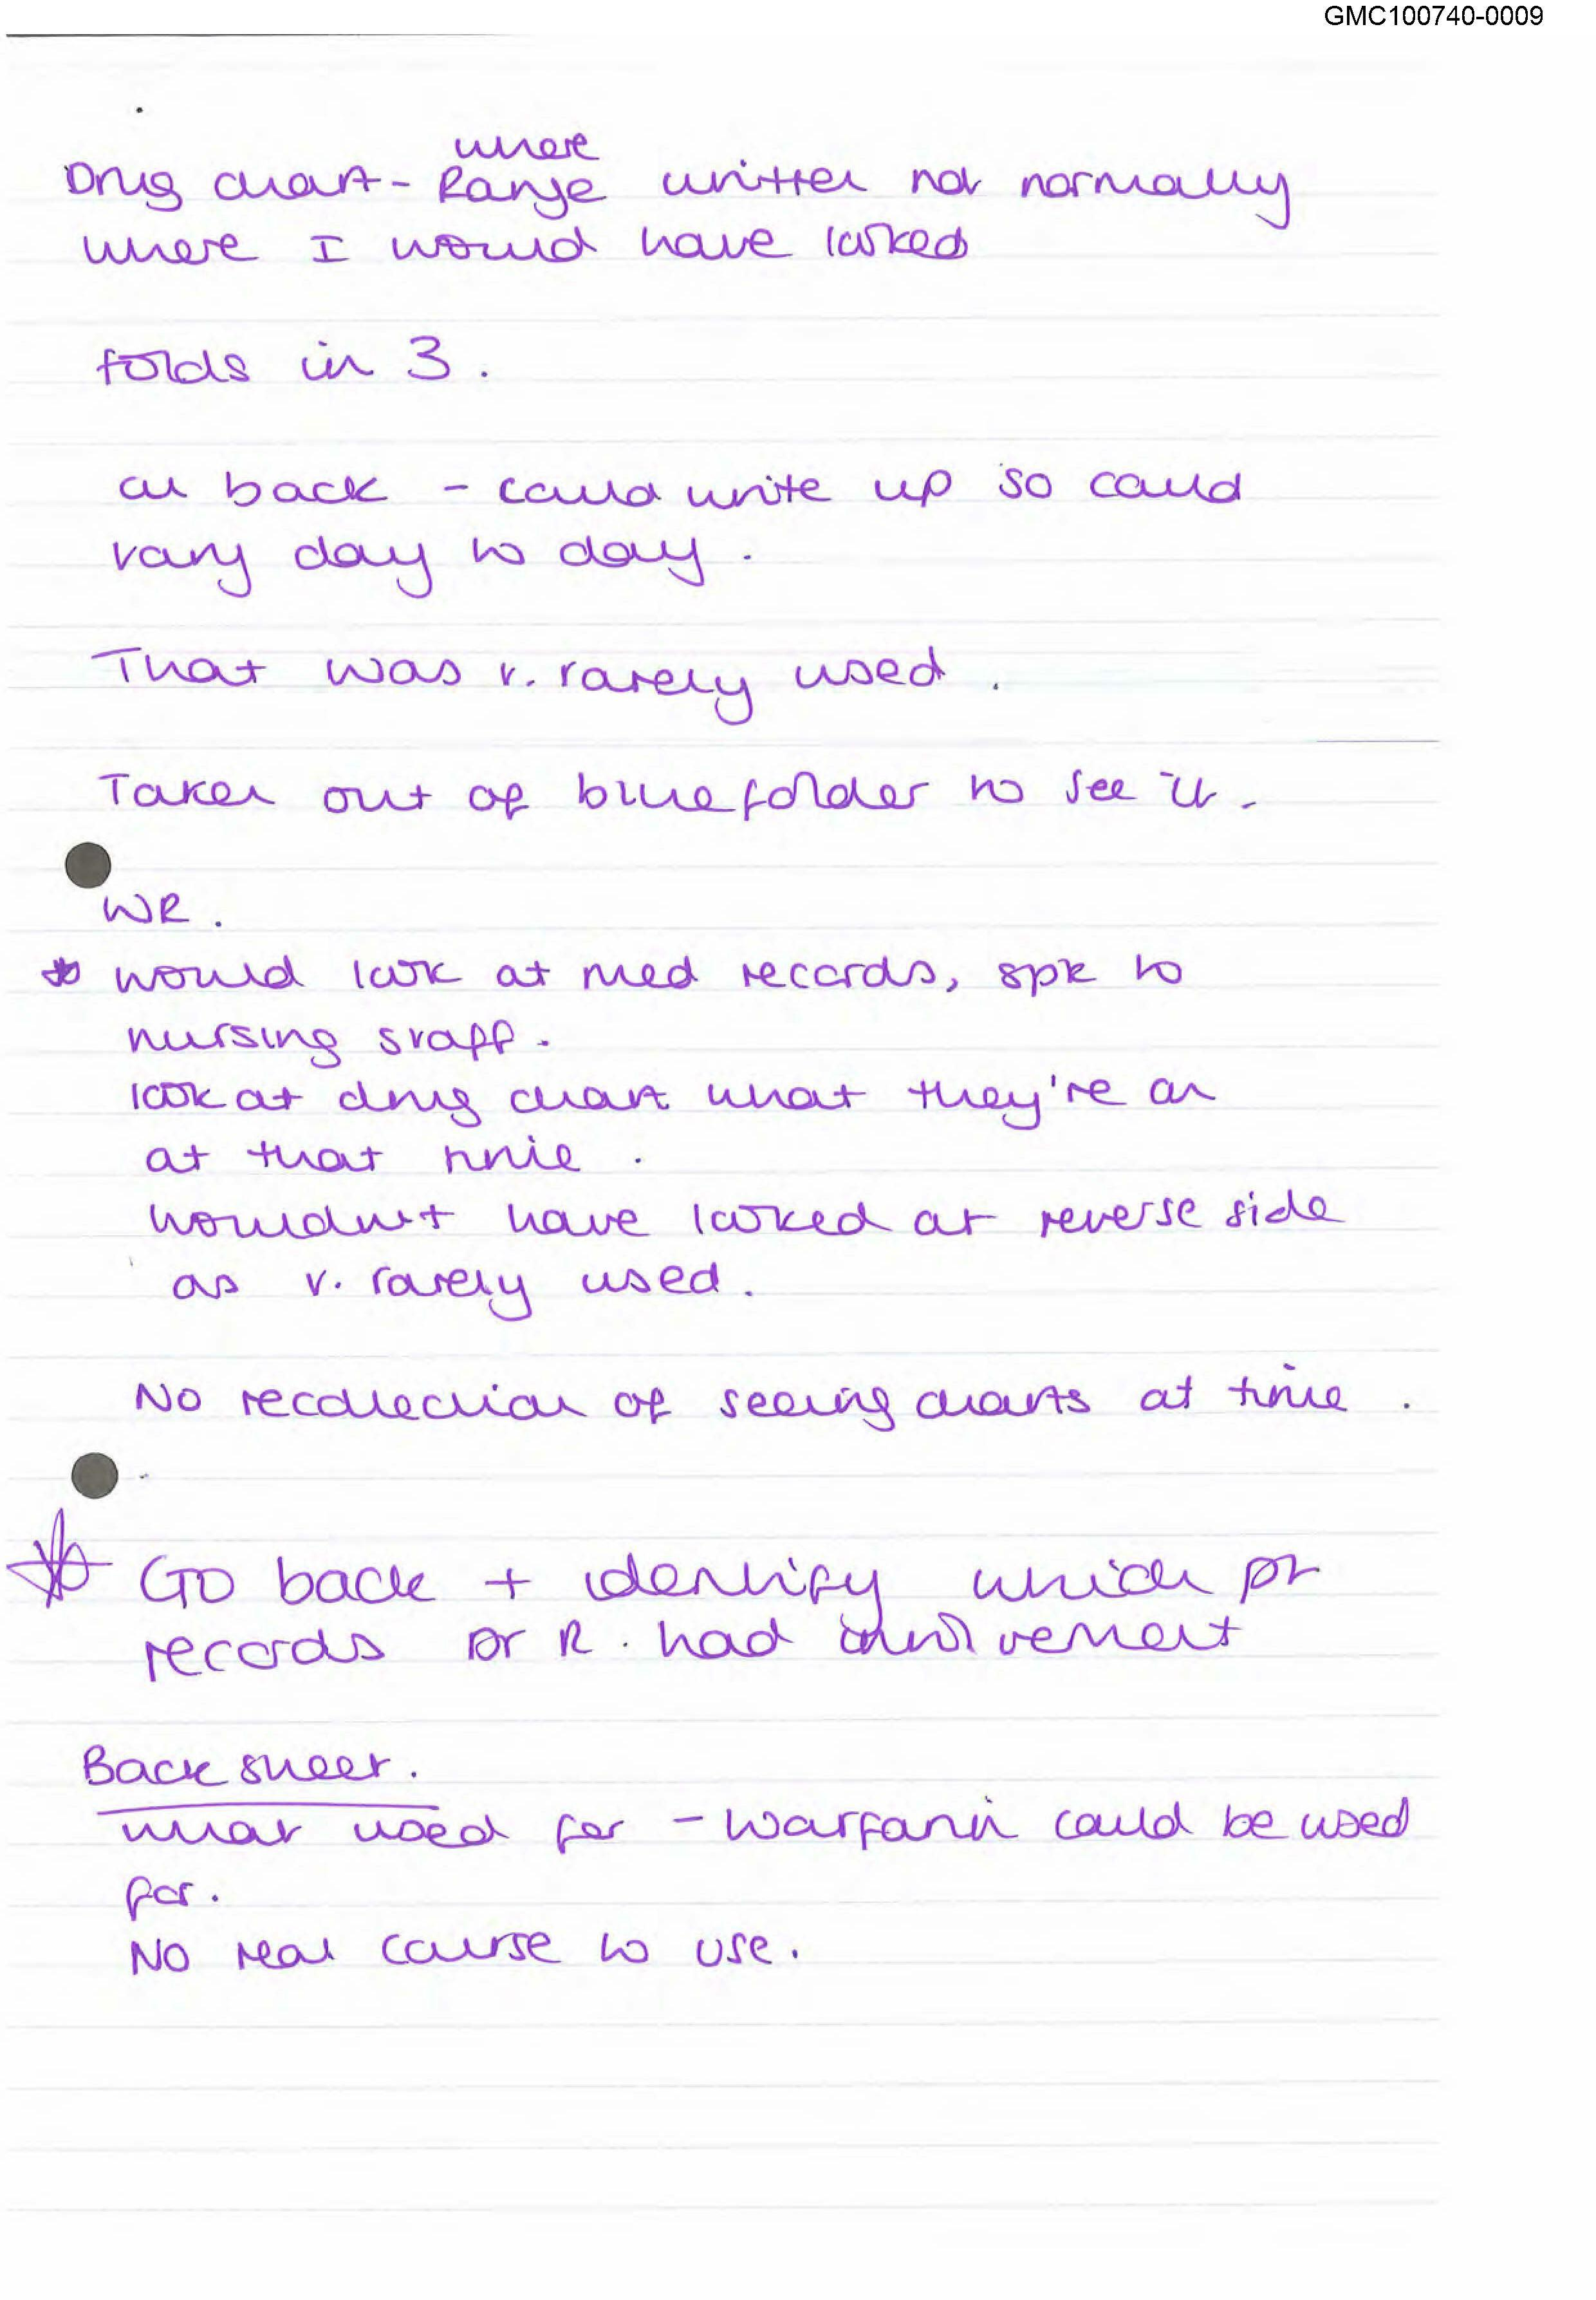 GMC100740-0009
where
Drug chart - Range written not normally
where I would have looked
folds in 3.
on back - could write up so could
vary day to day.
That was v. rarely used.
Taken out of blue folder to see it.
WR.
* would look at med records, spk to
nursing staff.
look at drug chart what they're on
at that time.
wouldn't have looked at reverse side
as v. rarely used.
No recollection of seeing charts at time.
* Go back + identify which pt
records Dr R. had involvement
Back sheet.
what used for - Warfarin could be used
for.
No real cause to use.